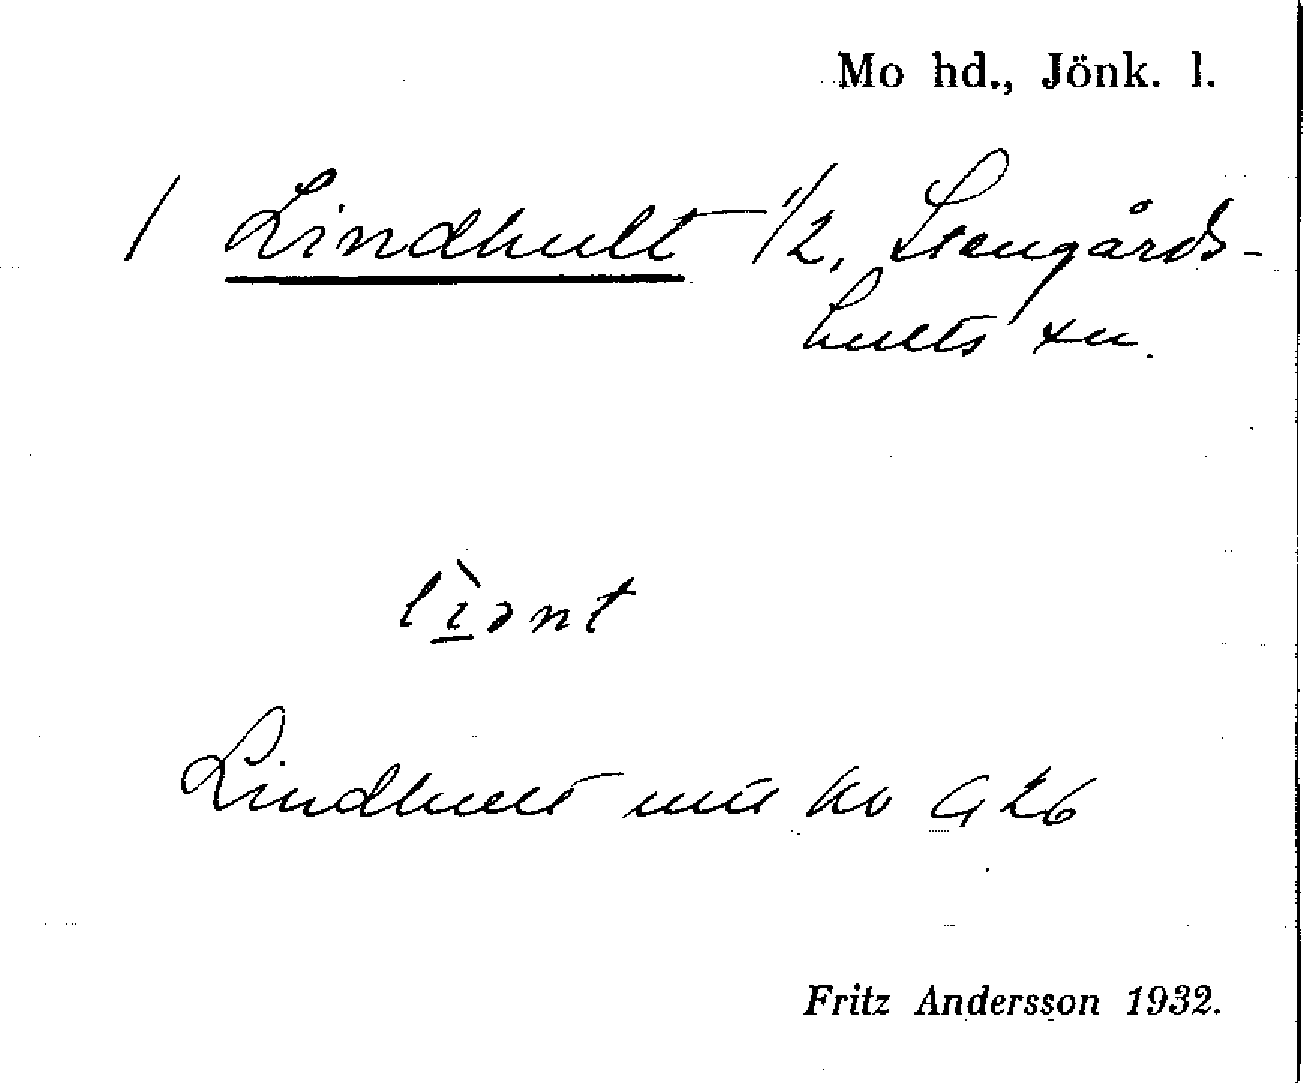 Mo hd., Jönk. l.
/ Lindhult 1/2, Stengårds-
hults sn.
lìɔnt
Lindhult GK 26
Fritz Andersson 1932.